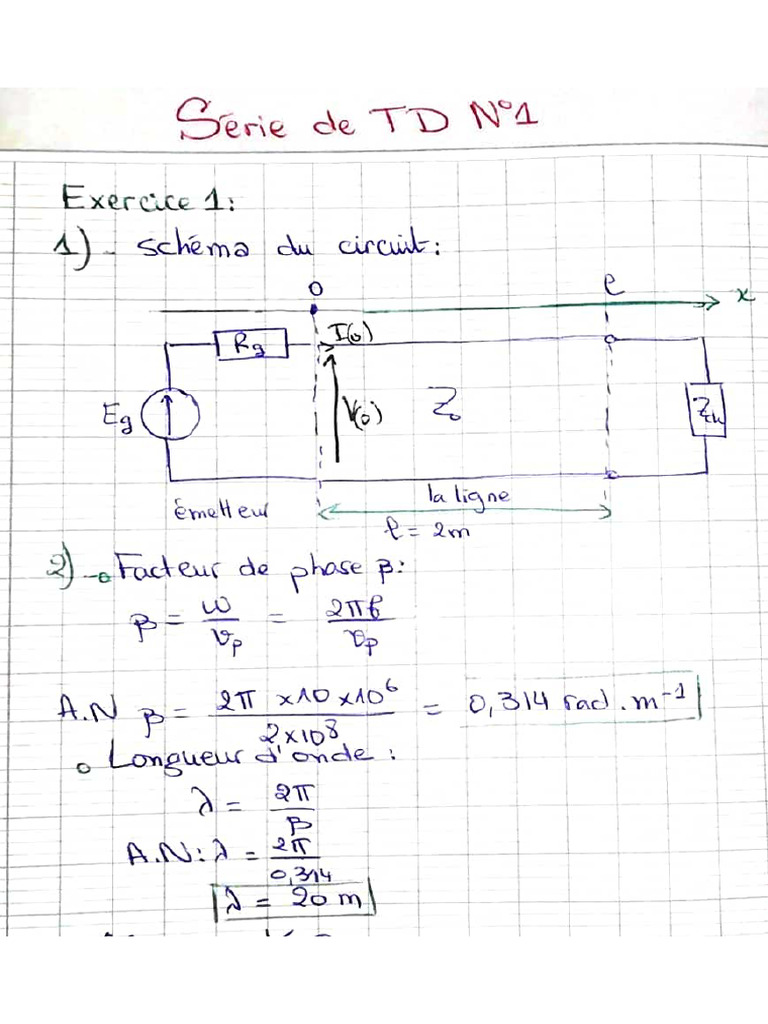 Série de TD N°1
Exercice 1:
1) - schéma du circuit:
0 ℓ x
Rg I(0)
Eg V(0) Z₀ Zu
émetteur la ligne
ℓ = 2m
2) - Facteur de phase β:
β = ω/vp = 2πf/vp
A.N β = 2π×10×10⁶/2×10⁸ = 0,314 rad.m⁻¹
Longueur d'onde :
λ = 2π/β
A.N: λ = 2π/0,314
λ = 20 m